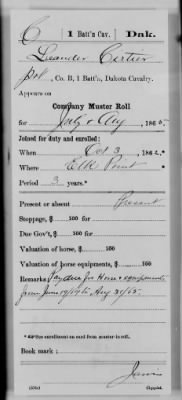 C 1 Batt'n Cav. Dak.
Leander Cartier
Pvt, Co. B, 1 Batt'n, Dakota Cavalry.
Appears on
Company Muster Roll
for July & Aug, 1865.
Joined for duty and enrolled:
When Oct 3, 1862.*
Where Elk Point
Period 3 years.*
Present or absent Present
Stoppage, $ 100 for
Due Gov't, $ 100 for
Valuation of horse, $ 100
Valuation of horse equipments, $ 100
Remarks Pay due for Horse & equipments
from June 19/65 to Aug 31/65.
*See enrollment on card from muster-in roll.
Book mark:
(358) Copyist.